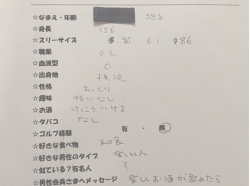 ☆なまえ・年齢 38才
☆身長 156
☆スリーサイズ 85 61 86
☆職業 OL
☆血液型 O
☆出身地
☆性格 おっとり
☆趣味
☆お酒 けっこういける
☆タバコ なし
☆ゴルフ経験 有・無
☆好きな食べ物 和食
☆好きな男性のタイプ 楽しい人
☆似ている?有名人 ?
☆男性会員さまへメッセージ 楽しいお酒が飲めたら